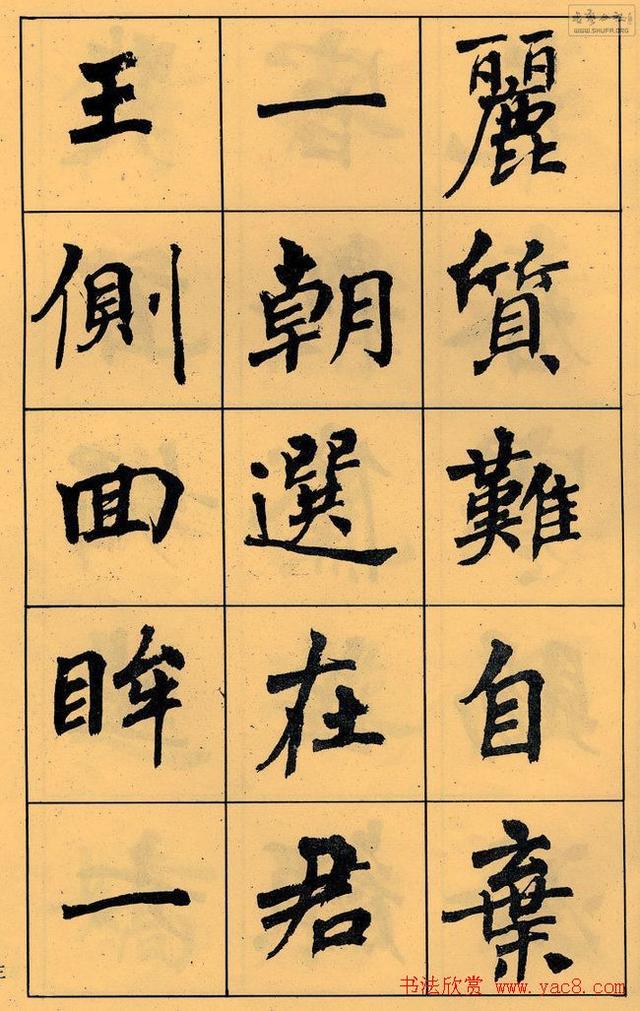 麗質難自棄
一朝選在君
王側回眸一
三
WWW.SHUFA.ORG
书法欣赏 www.yac8.com